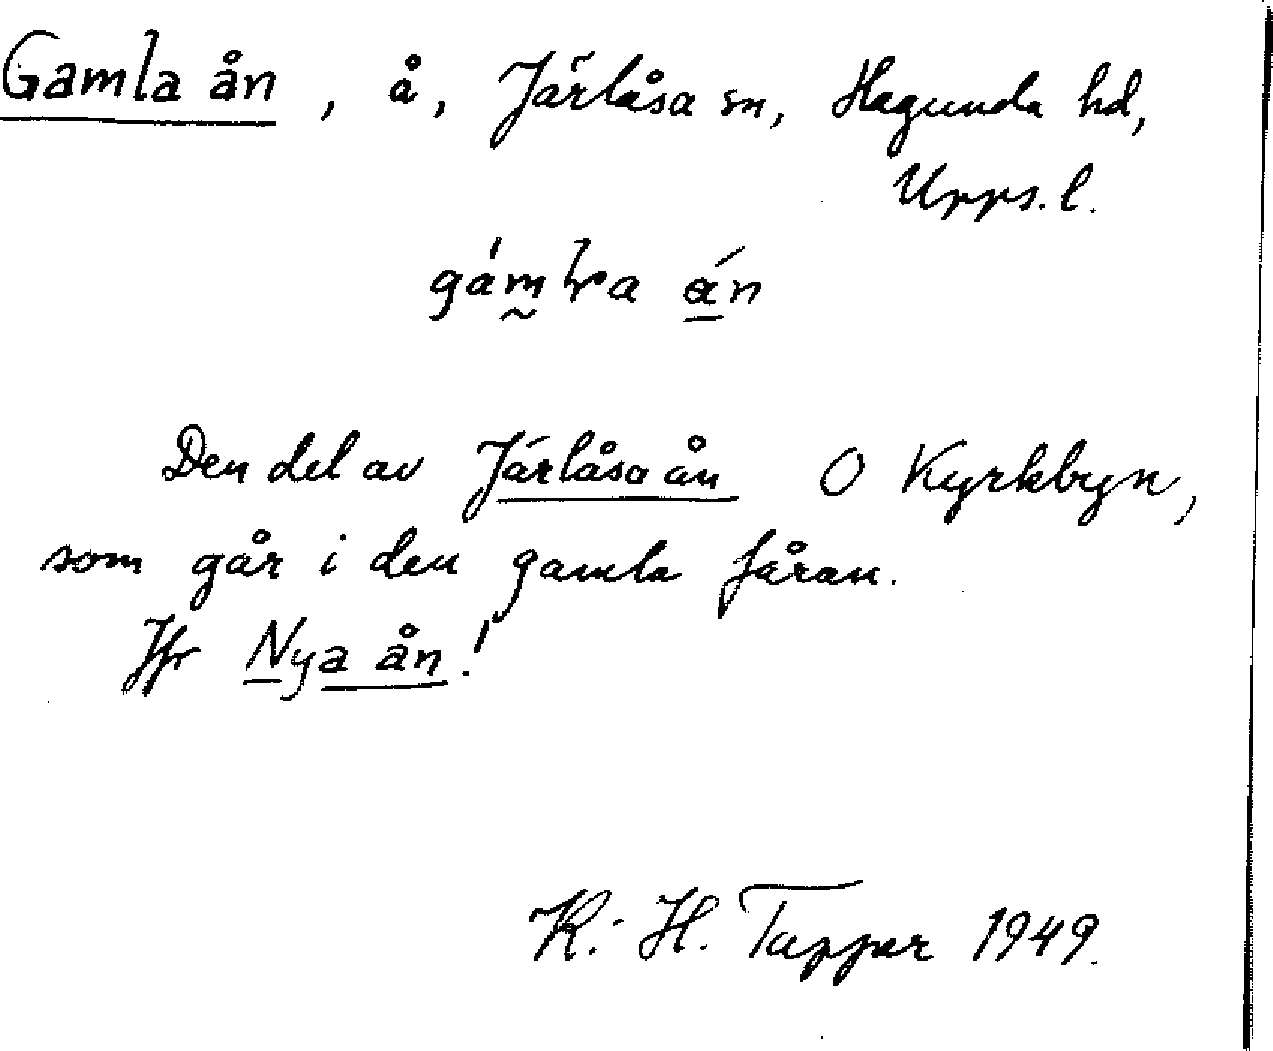 Gamla ån, å, Järlåsa sn, Hagunda hd,
Upps. l.
gámla án
Den del av Järlåsaån O Kyrkbyn,
som går i den gamla fåran.
Jfr Nya ån!
K.-H. Tapper 1949.